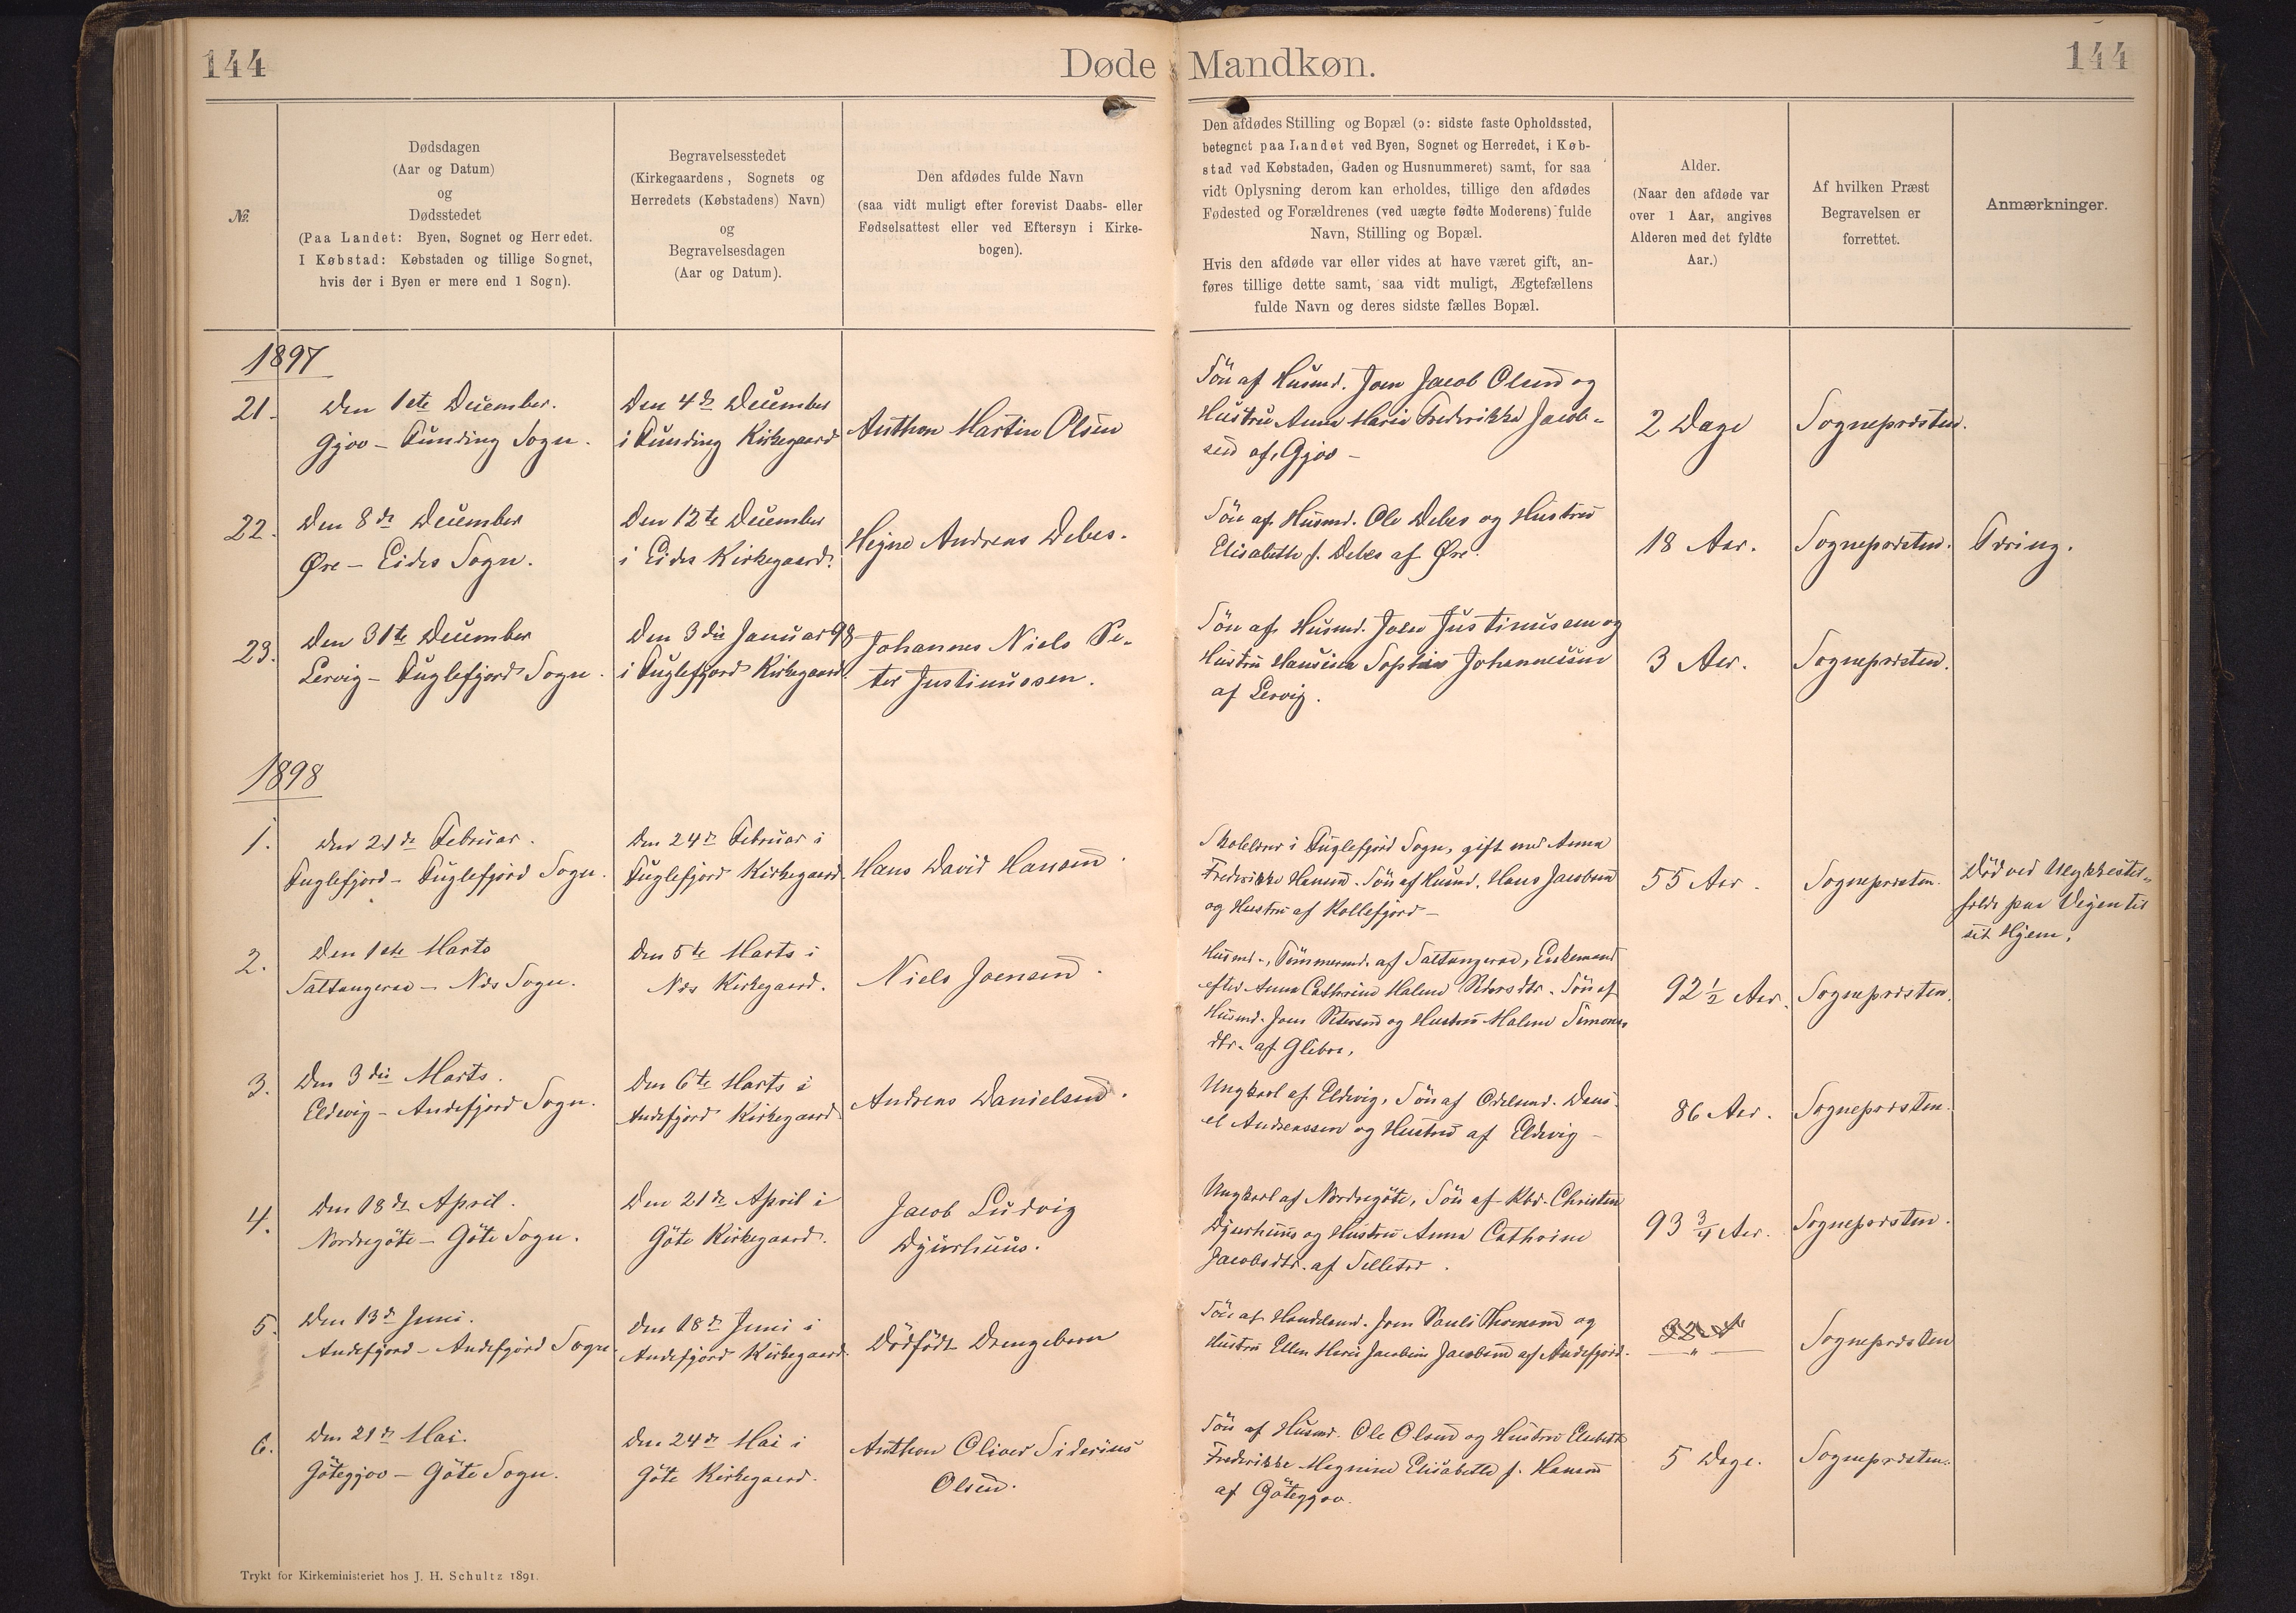 144
Døde Mandkøn.
144
№
Dødsdagen
(Aar og Datum)
og
Dødsstedet
(Paa Landet: Byen, Sognet og Herredet.
I Købstad: Købstaden og tillige Sognet,
hvis der i Byen er mere end 1 Sogn).
Begravelsesstedet
(Kirkegaardens, Sognets og
Herredets (Købstadens) Navn)
og
Begravelsesdagen
(Aar og Datum).
Den afdødes fulde Navn
(saa vidt muligt efter forevist Daabs- eller
Fødselsattest eller ved Eftersyn i Kirke-
bogen).
Den afdødes Stilling og Bopæl (ɔ: sidste faste Opholdssted,
betegnet paa Landet ved Byen, Sognet og Herredet, i Køb-
stad ved Købstaden, Gaden og Husnummeret) samt, for saa
vidt Oplysning derom kan erholdes, tillige den afdødes
Fødested og Forældrenes (ved uægte fødte Moderens) fulde
Navn, Stilling og Bopæl.
Hvis den afdøde var eller vides at have været gift, an-
føres tillige dette samt, saa vidt muligt, Ægtefællens
fulde Navn og deres sidste fælles Bopæl.
Alder.
(Naar den afdøde var
over 1 Aar, angives
Alderen med det fyldte
Aar.)
Af hvilken Præst
Begravelsen er
forrettet.
Anmærkninger.
1897
21.
Den 1ste December.
Gjov – Funding Sogn.
Den 4de December
i Funding Kirkegaard
Anthon Martin Olsen
Søn af Husmd. Joen Jacob Olsen og
Hustru Anna Maria Frederikke Jacob-
sen af Gjov –
2 Dage
Sognepræsten.
22.
Den 8de December
Øre – Eides Sogn.
Den 12te December
i Eides Kirkegaard.
Hejne Andreas Debes.
Søn af Husmd. Ole Debes og Hustru
Elisabeth f. Debes af Øre.
18 Aar.
Sognepræsten.
Tæring.
23.
Den 31te December
Lervig – Fuglefjord Sogn.
Den 3die Januar 98
i Fuglefjord Kirkegaard.
Johannes Niels Pe-
ter Justinussen.
Søn af Husmd. Joen Justinussen og
Hustru Hansina Sophie Johannesen
af Lervig.
3 Aar.
Sognepræsten.
1898
1.
Den 21de Februar.
Fuglefjord – Fuglefjord Sogn.
Den 24de Februar i
Fuglefjord Kirkegaard
Hans David Hansen.
Skolelærer i Fuglefjord Sogn, gift med Anna
Frederikke Hansen. Søn af Husmd. Hans Jacobsen
og Hustru af Kollefjord –
55 Aar.
Sognepræsten.
Død ved Ulykkestil-
fælde paa Vejen til
sit Hjem.
2.
Den 1ste Marts
Saltangeraa – Næs Sogn.
Den 5te Marts i
Næs Kirkegaard.
Niels Joensen.
Husmd., Tømmermd. af Saltangeraa, Enkemand
efter Anna Cathrine Malene Pedersdtr. Søn af
Husmd. Joen Petersen og Hustru Malene Simons-
dtr. af Glibre.
92 ½ Aar.
Sognepræsten.
3.
Den 3die Marts.
Eldevig – Andefjord Sogn.
Den 6te Marts i
Andefjord Kirkegaard
Andreas Danielsen.
Ungkarl af Eldevig, Søn af Odelsmd. Dani-
el Andreassen og Hustru af Eldevig –
86 Aar.
Sognepræsten.
4.
Den 18de April.
Nordregöte – Göte Sogn.
Den 21de April i
Göte Kirkegaard.
Jacob Ludvig
Djurhuus.
Ungkarl af Nordregöte, Søn af Kbd. Christen
Djurhuus og Hustru Anna Cathrine
Jacobsdtr. af Selletræ.
93 ¾ Aar.
Sognepræsten.
5.
Den 13de Juni.
Andefjord – Andefjord Sogn
Den 18de Juni i
Andefjord Kirkegaard.
Dödfödt Drengebarn
Søn af Handelsmd. Joen Pauli Thomsen og
Hustru Ellen Marie Jacobine Jacobsen af Andefjord.
– " –
Sognepræsten
6.
Den 21de Mai.
Götegjov – Göte Sogn.
Den 24de Mai i
Göte Kirkegaard.
Anthon Oliver Siderius
Olsen.
Søn af Husmd. Ole Olsen og Hustru Elsebeth
Frederikke Magnine Elisabetha f. Hansen
af Götegjov.
5 Dage.
Sognepræsten.
Trykt for Kirkeministeriet hos J. H. Schultz 1891.